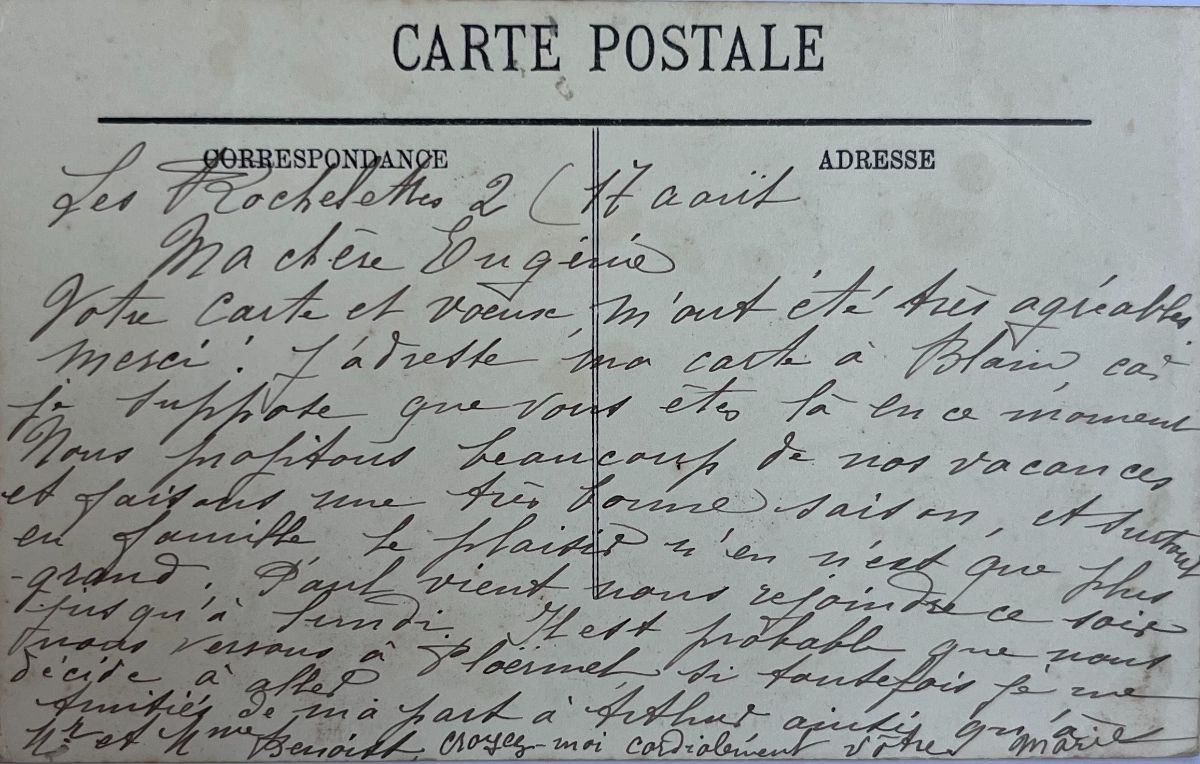 CARTE POSTALE
CORRESPONDANCE
ADRESSE
Les Rochelettes 2 (17 août
Ma chère Eugénie
Votre carte et vœux m'ont été très agréables
merci ! J'adresse ma carte à Blain, car
je suppose que vous êtes là en ce moment
Nous profitons beaucoup de nos vacances
et faisons une très bonne saison, et surtout
en famille le plaisir n'en n'est que plus
grand. Paul vient nous rejoindre ce soir
jusqu'à lundi. Il est probable que nous
nous verrons à Ploërmel, si toutefois je me
décide à aller
Amitiés de ma part à Arthur ainsi qu'à
Mr et Mme Benoist, croyez-moi cordialement vôtre Marie